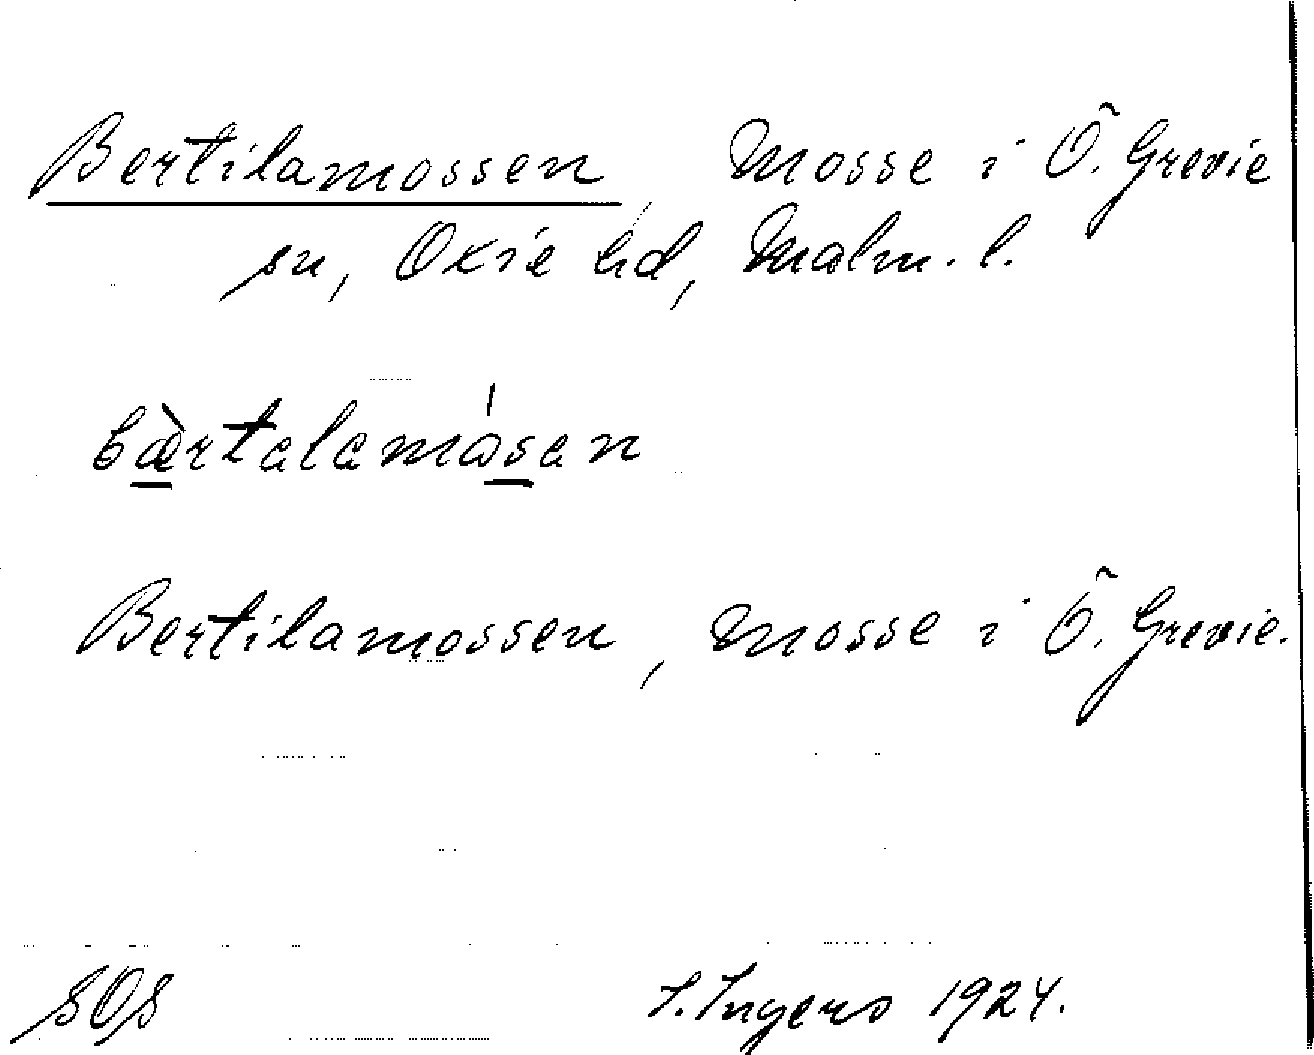 Bertilamossen, Mosse i Ö. Grevie
sn, Oxie hd, Malm. l.
bæ̀rtalamåsan
Bertilamossen, Mosse i Ö. Grevie.
SOS I. Ingers 1924.